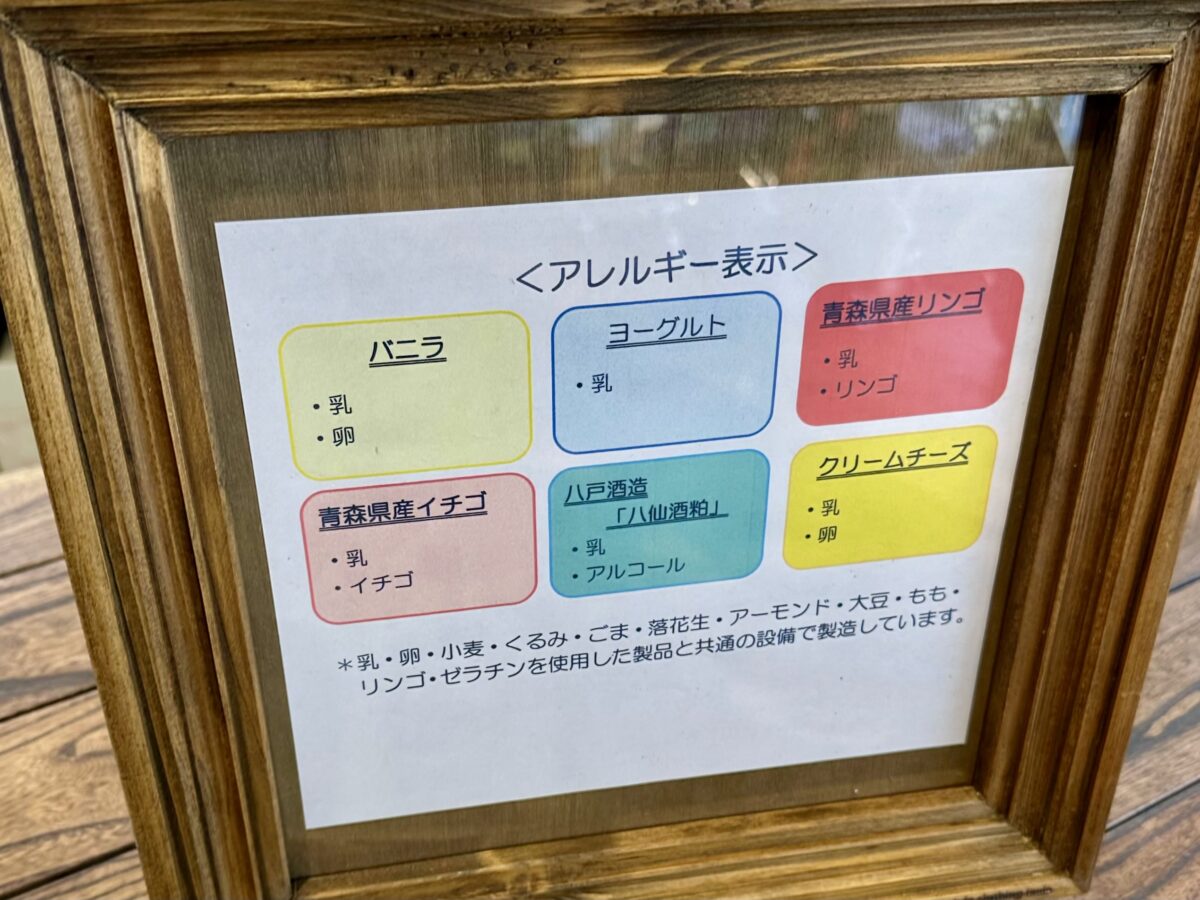 ＜アレルギー表示＞
バニラ
・乳
・卵
ヨーグルト
・乳
青森県産リンゴ
・乳
・リンゴ
青森県産イチゴ
・乳
・イチゴ
八戸酒造
「八仙酒粕」
・乳
・アルコール
クリームチーズ
・乳
・卵
＊乳・卵・小麦・くるみ・ごま・落花生・アーモンド・大豆・もも・
リンゴ・ゼラチンを使用した製品と共通の設備で製造しています。